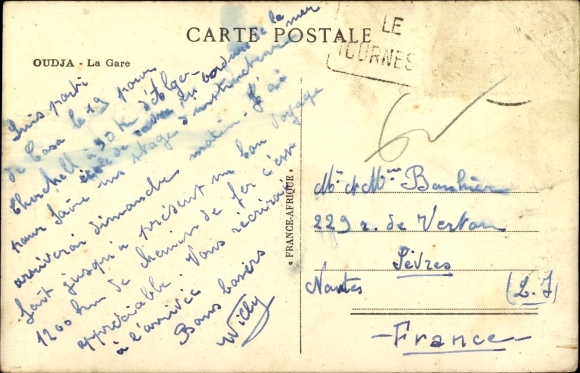 CARTE POSTALE
OUDJA - La Gare
LE
TOURNES
Suis parti
de Casa le 19 pour
Cherchell à 90 km d'Alger
école de cadres des bords de la mer
pour faire un stage d'instruction
arriverai dimanche matin. J'ai
fait jusqu'à présent un bon voyage
1200 km de chemin de fer c'est
appréciable. Vous écrirai
à l'arrivée
Bons baisers
Willy
"FRANCE-AFRIQUE"
Mr et Mme
229 r. de Vertou
Sèvres
Nantes (L. I)
France